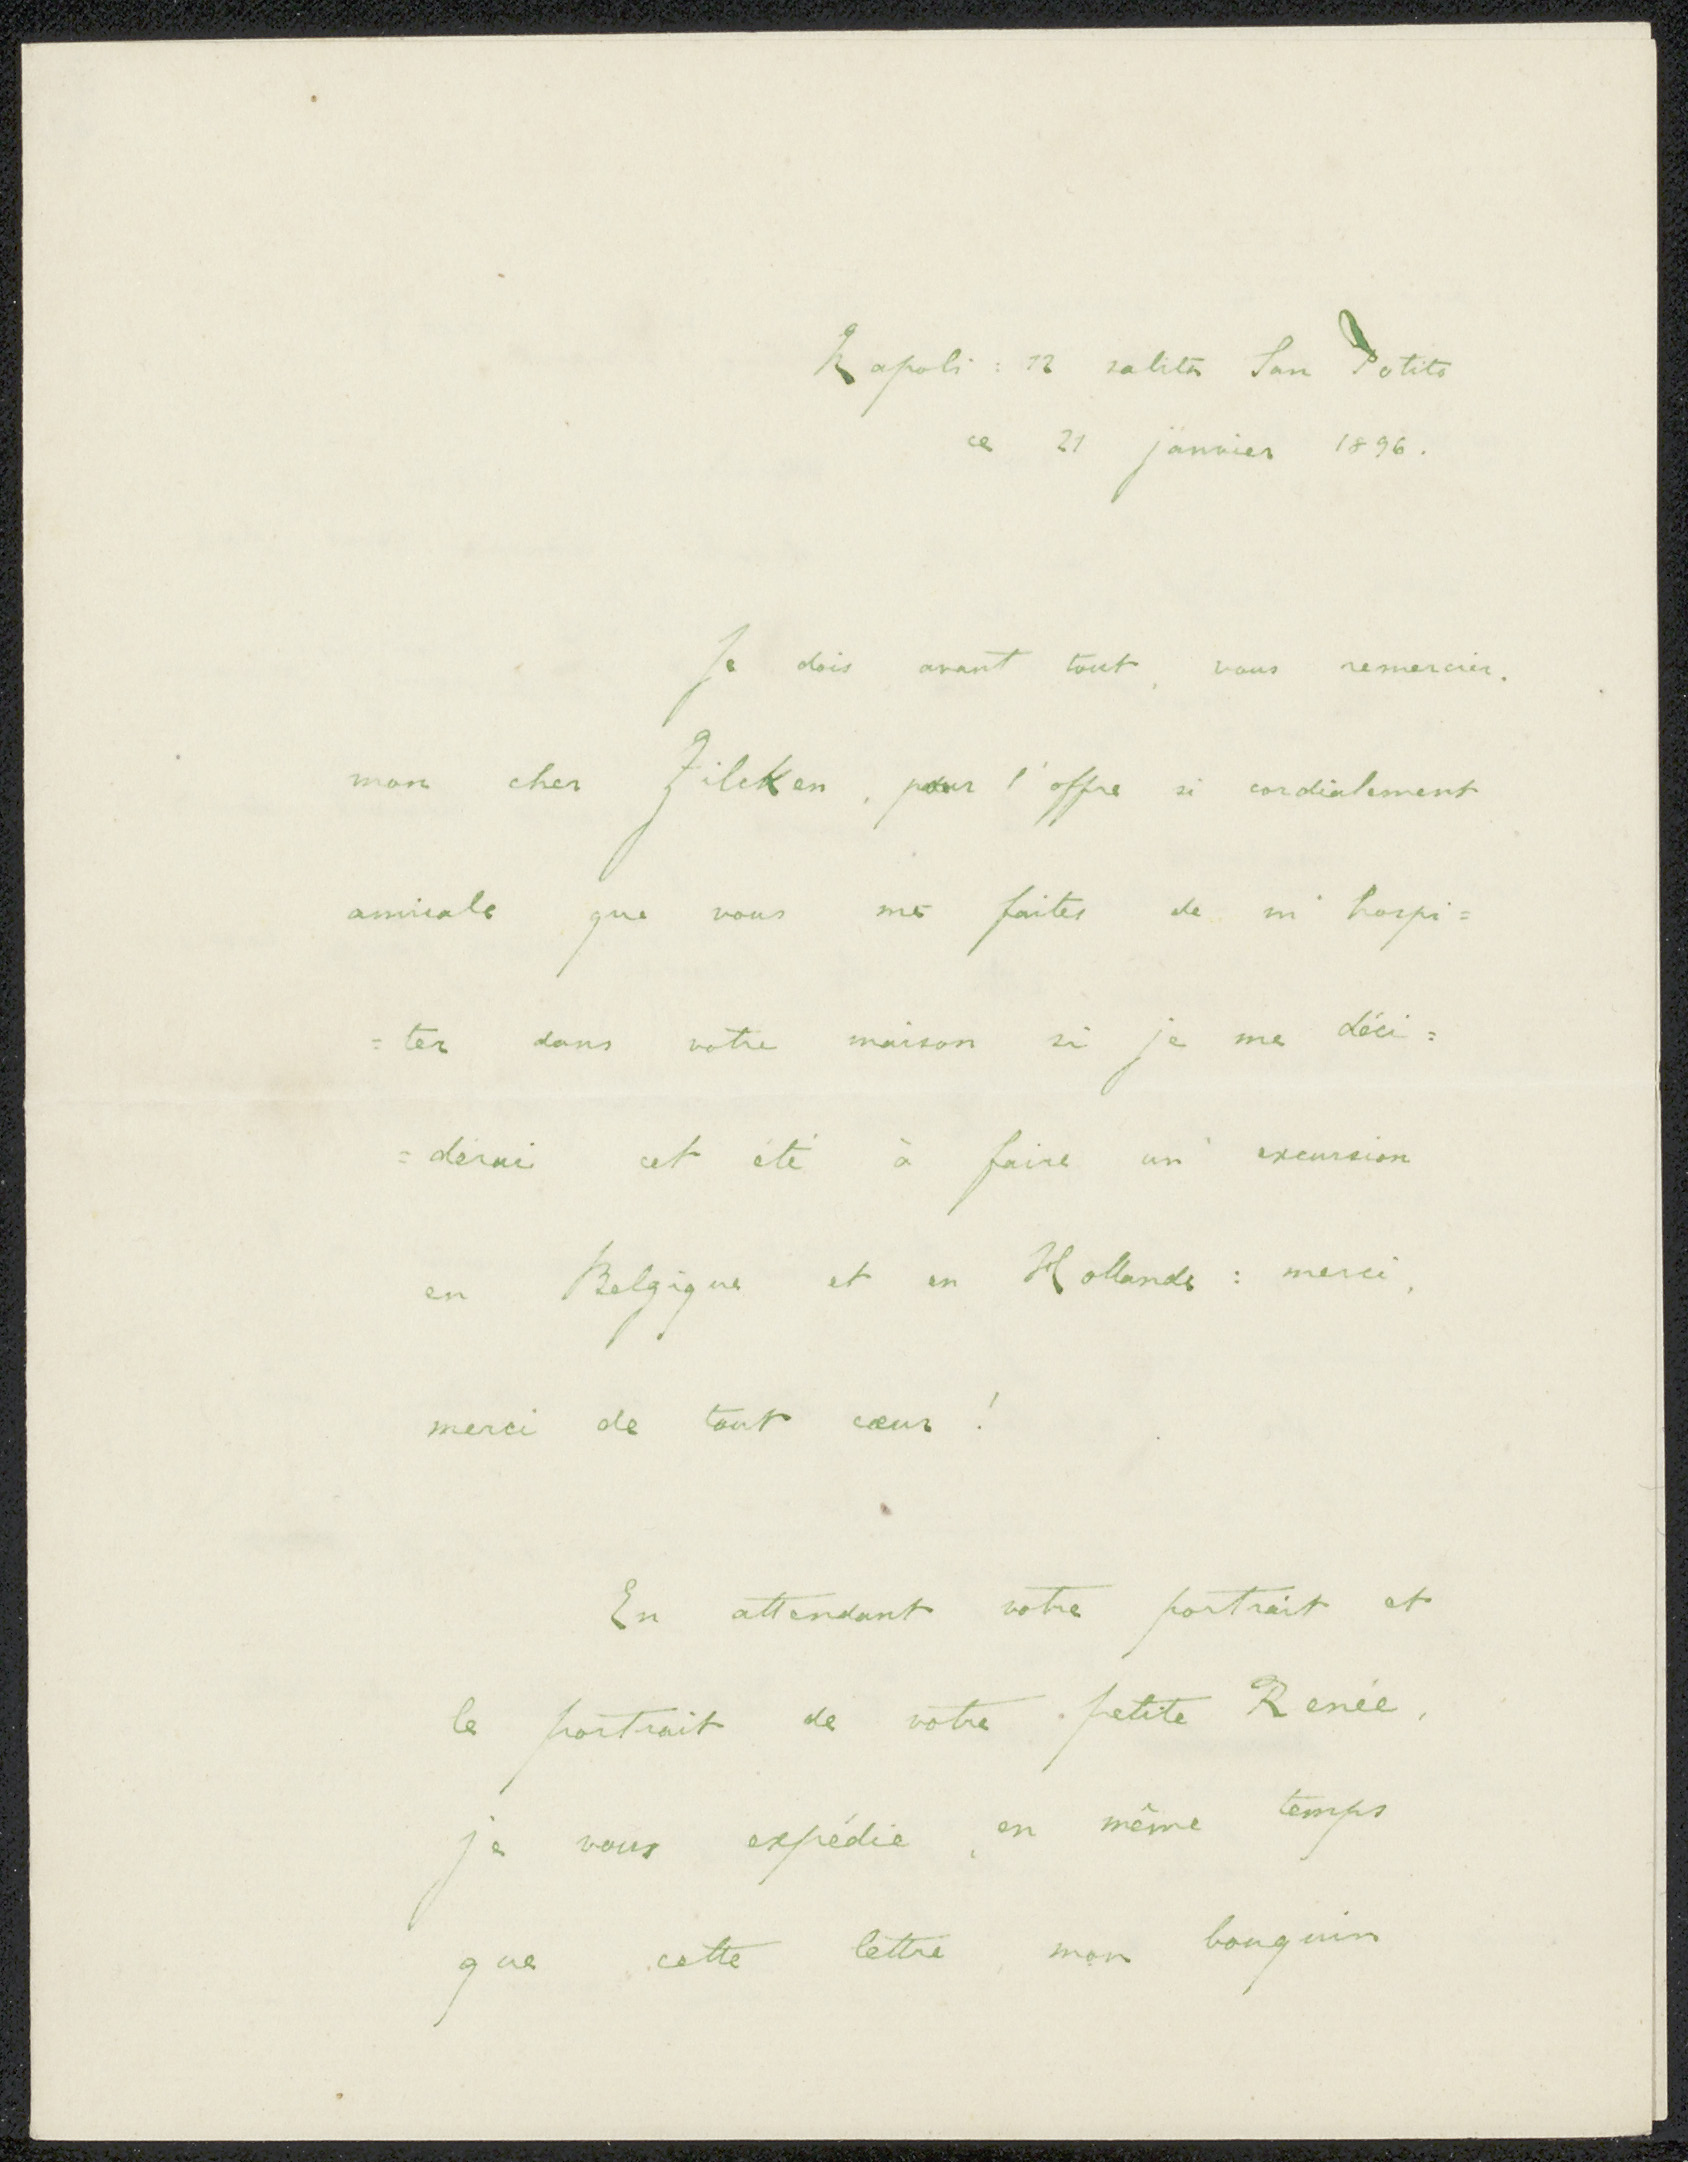 Napoli : 12 salita San Potito
ce 21 janvier 1896.
Je dois avant tout, vous remercier,
mon cher Zilcken, pour l'offre si cordialement
amicale que vous me faites de m'hospi=
=ter dans votre maison si je me déci=
=derai cet été à faire un' excursion
en Belgique et en Hollande : merci,
merci de tout cœur !
En attendant votre portrait et
le portrait de votre petite Renée,
je vous expédie, en même temps
que cette lettre, mon bouquin